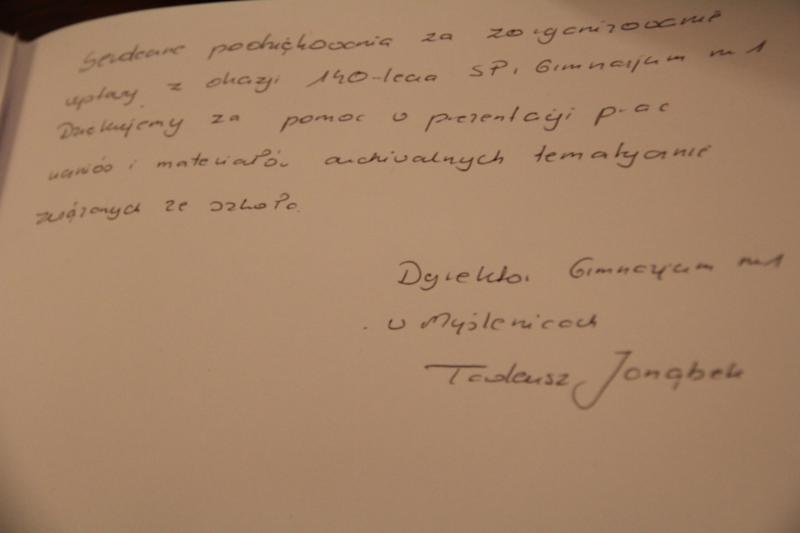 Serdeczne podziękowania za zorganizowanie
wystawy z okazji 140-lecia SP i Gimnazjum nr 1
Dziękujemy za pomoc w prezentacji prac
uczniów i materiałów archiwalnych tematycznie
związanych ze szkołą.
Dyrektor Gimnazjum nr 1
w Myślenicach
Tadeusz Jarząbek